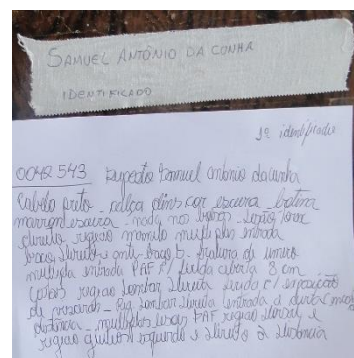 SAMUEL ANTÔNIO DA CUNHA
IDENTIFICADO
1º identificador
0042 543 Samuel Antonio da cunha
Cabelo preto - calça jeans cor escura botina
marron escura - nada nos bolsos - torax
direito região mamilo multiplas entrada
braço direito e ante-braço D. fratura de umero
multipla entrada PAF c/ ferida aberta 8 cm
região lombar direita c/
de - Reg. lombar direita entrada a curta
distancia - multiplas PAF região dorsal e
região glutea esquerda e direita a distancia